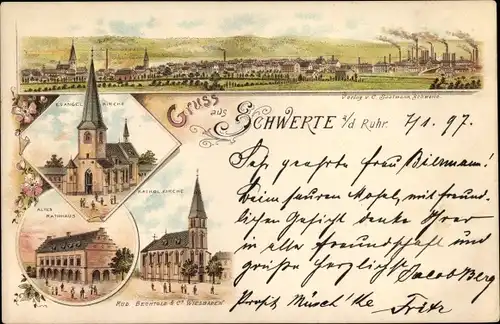 Verlag v. C. Bestmann, Schwerte.
Gruss aus SCHWERTE a/d Ruhr. 7/1. 97.
EVANGEL. KIRCHE
KATHOL. KIRCHE
ALTES
RATHHAUS
ROB. BECHTOLD & Co WIESBADEN
Sehr geehrte Frau Biermann!
Beim sauren Mosel, mit freund-
lichen Gesicht denke Ihrer
in aller Freundschaft und
grüße herzlichst Jacob Berg
Prosit Fritz